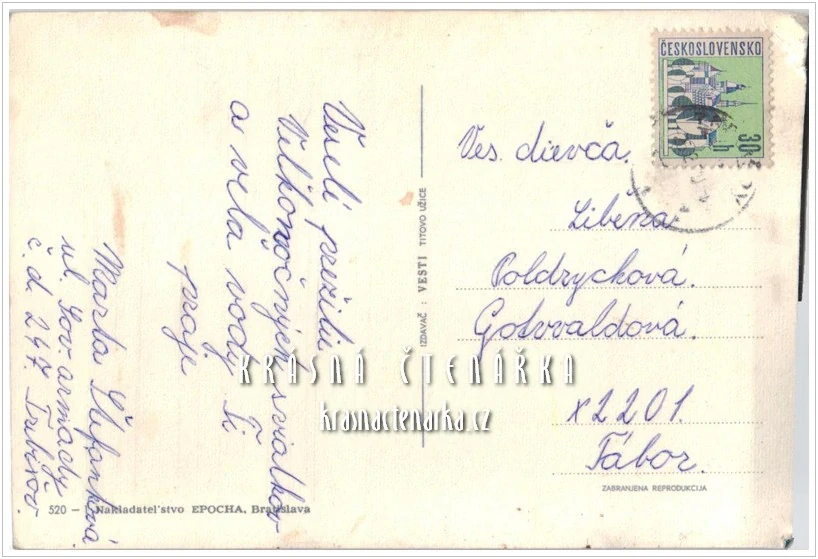 ČESKOSLOVENSKO
30 h
Veselé prežitie
Veľkonočných sviatkov
a veľa vody Ti
praje
Marta Štefanková
ul. Sov. armády
č. d. 247. Trebišov.
Ves. dievča.
Liběna
Poldrychová.
Gotvvaldová.
x2201.
Tábor.
IZDAVAČ : VESTI TITOVO UŽICE
KRÁSNÁ ČTENÁŘKA
krasnactenarka.cz
ZABRANJENA REPRODUKCIJA
520 — Nakladateľstvo EPOCHA, Bratislava